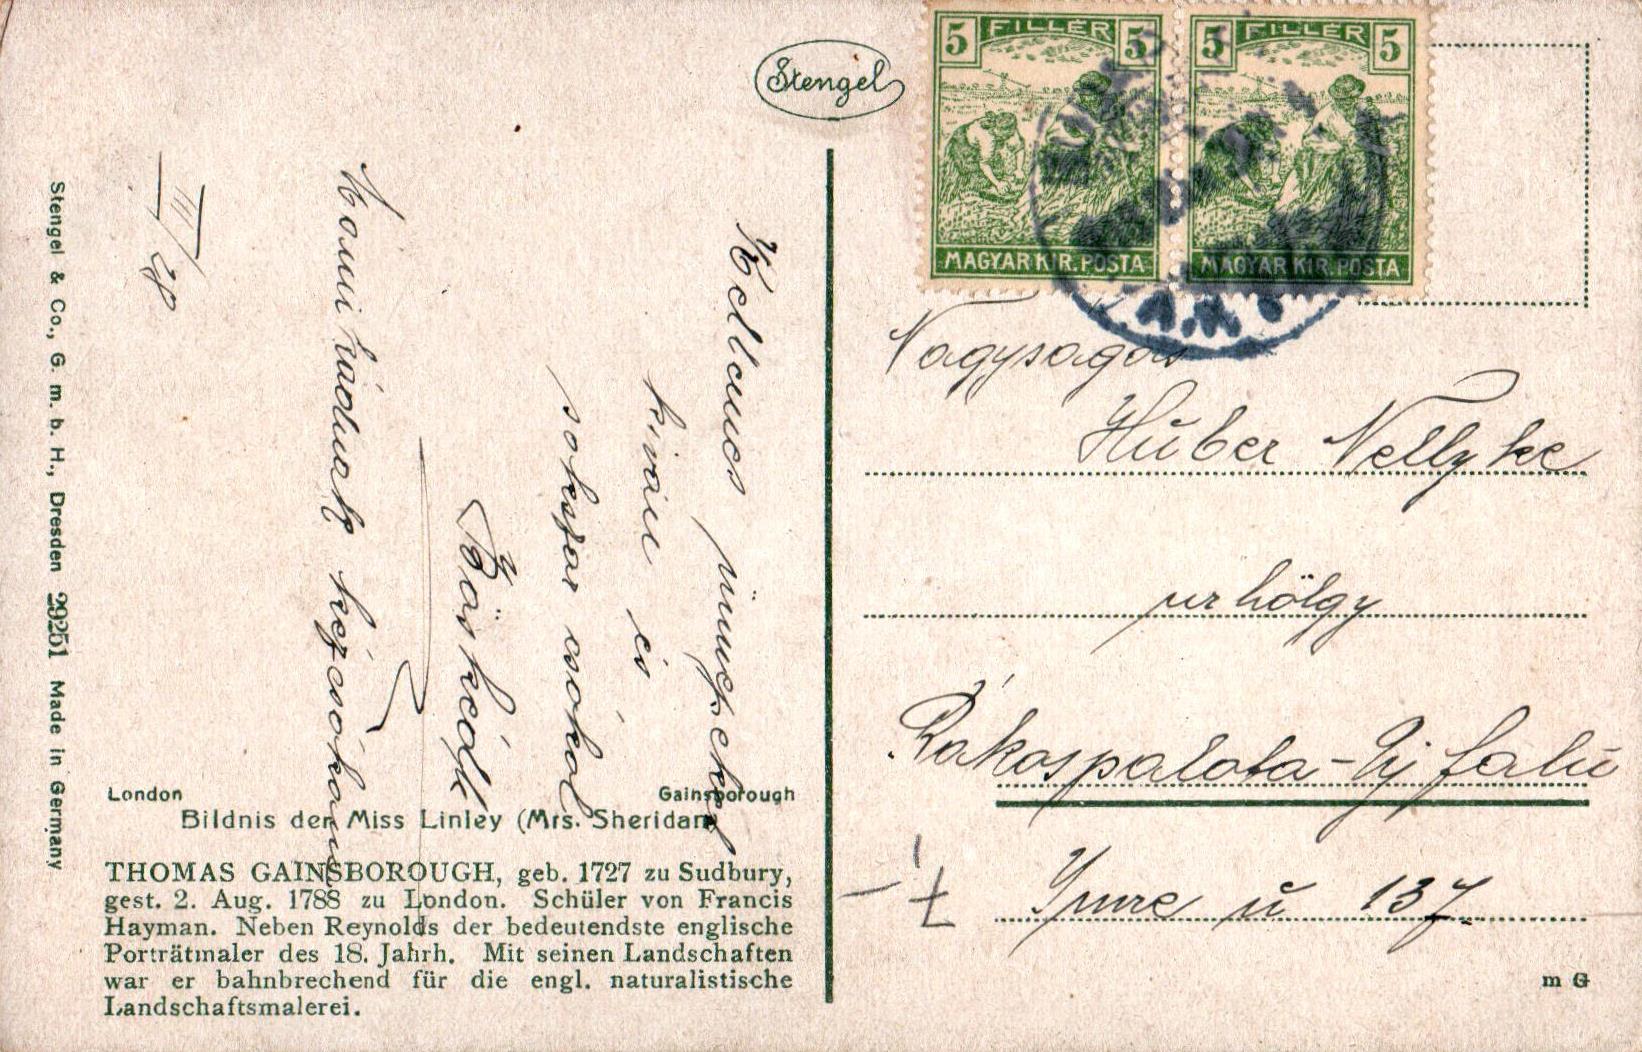 Stengel
5 FILLÉR 5
MAGYAR KIR. POSTA
5 FILLÉR 5
MAGYAR KIR. POSTA
III/20
Kellemes ünnepeket
kiván és
sokszor csókol
Mámihádnak kézcsókom
Nagyságos
Huber Nellyke
urhölgy
Rákospalota-Uj falu
Imre u 137.
London Gainsborough
Bildnis der Miss Linley (Mrs. Sheridan)
THOMAS GAINSBOROUGH, geb. 1727 zu Sudbury,
gest. 2. Aug. 1788 zu London. Schüler von Francis
Hayman. Neben Reynolds der bedeutendste englische
Porträtmaler des 18. Jahrh. Mit seinen Landschaften
war er bahnbrechend für die engl. naturalistische
Landschaftsmalerei.
Stengel & Co., G. m. b. H., Dresden 29251 Made in Germany
m G